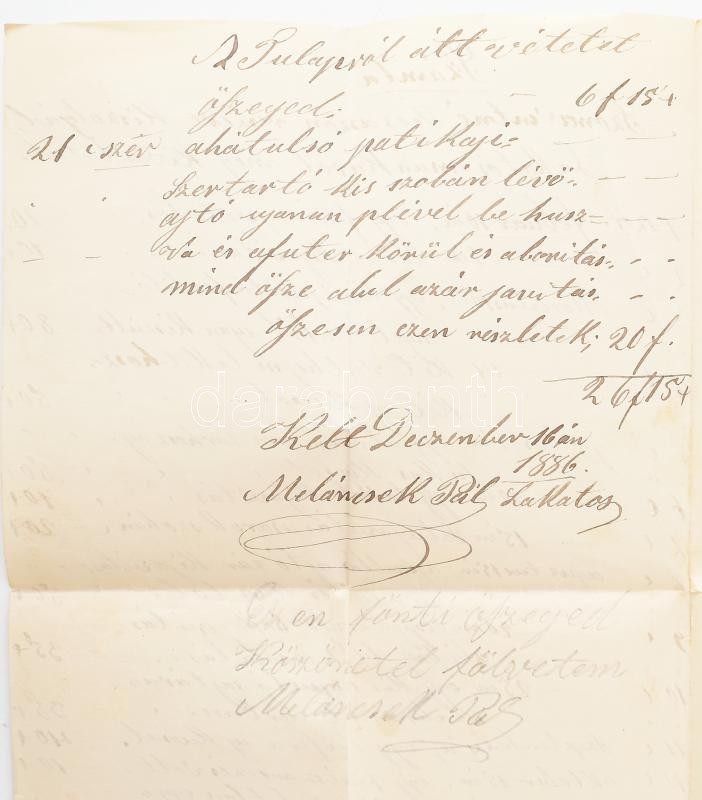 A Tulapról átt vétetet
öszeged: — 6 f 15 x
21 szér ahátulsó patikaji=
szertartó kis szobán lévö-
ajtó ujanan plével be husz=
va és afuter körül és aboritás.
mind ösze alul azár javitás.
öszesen ezen részletek; 20 f.
26 f 15 x
Kelt Deczenber 16 án
1886.
Meláncsek Pál Lakatos
darabanth
Ezen fönti öszeged
Köszönetel fölvetem
Meláncsek Pál